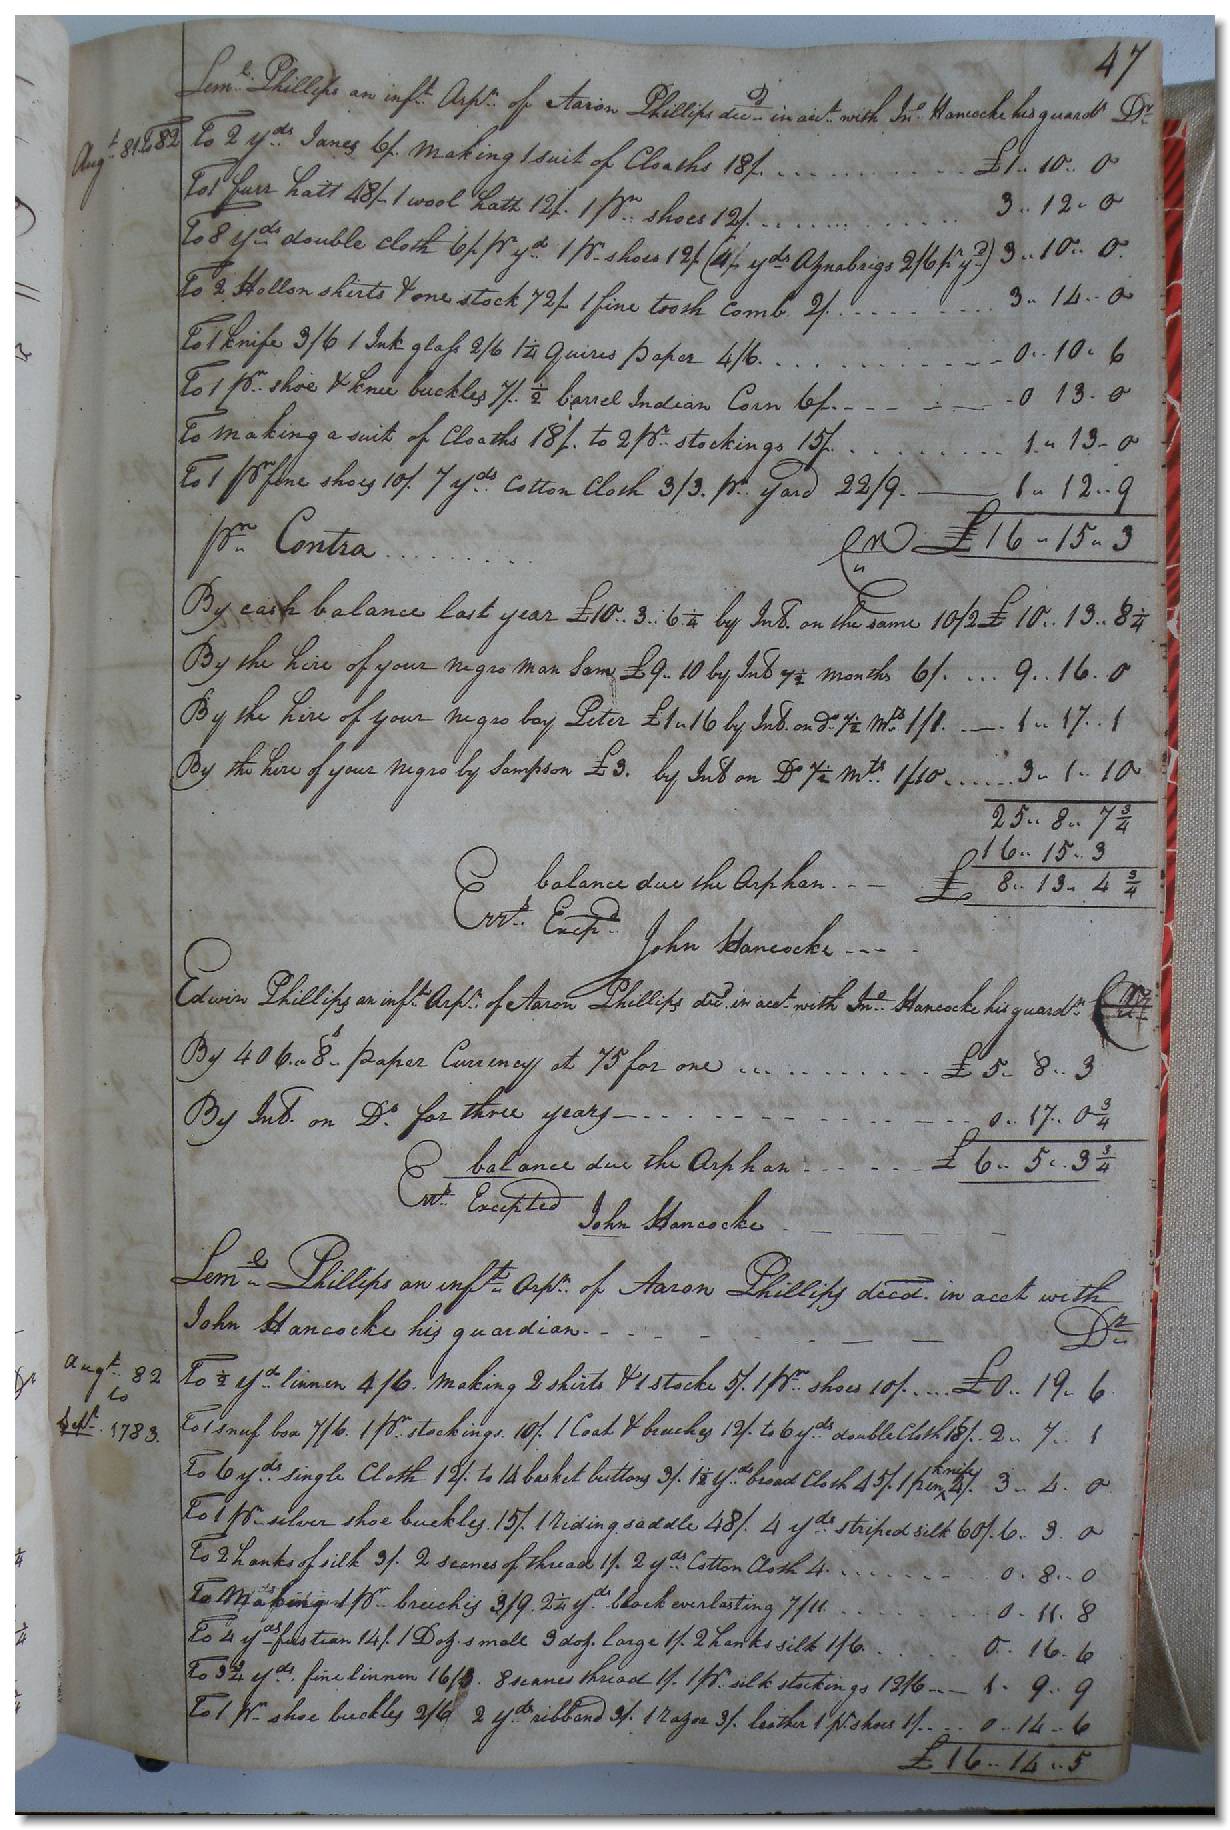 47
Leml. Phillips an inft. Orpn. of Aaron Phillips decd. in acct. with Jno. Hancocke his guardn. Dr.
Augt. 81 to 82 To 2 yds Janes 6/. making 1 suit of Cloaths 18/. £1.. 10.. 0
To 1 furr hatt 48/. 1 wool hatt 12/. 1 Pr. shoes 12/. 3.. 12.. 0
To 8 yds double cloth 6/. Pr yd 1 Pr. shoes 12/. (4/. yds Oznabrigs 2/6 Pr yd) 3.. 10.. 0.
To 2 Hollon shirts & one stock 72/. 1 fine tooth comb 2/. 3.. 14.. 0
To 1 knife 3/6 1 Ink glass 2/6 1 1/4 Quires paper 4/6. 0.. 10.. 6
To 1 Pr. shoe & knee buckles 7/. 1/2 barrel Indian Corn 6/. 0 13.. 0
To making a suit of Cloaths 18/. to 2 Pr. stockings 15/. 1.. 13.. 0
To 1 Pr fine shoes 10/. 7 yds. Cotton Cloth 3/3. Pr. yard 22/9. 1.. 12.. 9
Pr. Contra Cr £16.. 15.. 3
By cash balance last year £10.. 3.. 6 1/4 by Int. on the same 10/2 £10.. 13.. 8 1/4
By the hire of your negro man Sam £9.. 10 by Int 7 1/2 months 6/. 9.. 16.. 0
By the hire of your negro boy Peter £1.. 16 by Int. on Do. 7 1/2 Mts. 1/1. 1.. 17.. 1
By the hire of your negro by Sampson £3. by Int on Do 7 1/2 mts. 1/10 3.. 1.. 10
25.. 8.. 7 3/4
16.. 15.. 3
balance due the Orphan £ 8.. 13.. 4 3/4
Errs. Excpd.
John Hancocke
Edwin Phillips an inft. Orpn. of Aaron Phillips decd. in acct. with Jno. Hancocke his guardn. Cr
By 406.. 8.. paper Currency at 75 for one £5.. 8.. 3
By Int. on Do. for three years 0.. 17.. 0 3/4
balance due the Orphan £6.. 5.. 3 3/4
Errs. Excepted
John Hancocke
Leml. Phillips an inft. Orpn. of Aaron Phillips decd. in acct with
John Hancocke his guardian Dr.
Augt. 82 to Sept. 1783. To 1/2 yd. linnen 4/6. making 2 shirts & 1 stocke 5/. 1 Pr. shoes 10/. £0.. 19.. 6
To 1 snuf box 7/6. 1 Pr. stockings. 10/. 1 Coat & breeches 12/. to 6 yds double Cloth 18/. 2.. 7.. 1
To 6 yds single Cloth 12/. to 14 basket buttons 3/. 1 1/2 yds broad Cloth 45/. 1 pen knife 4/. 3.. 4.. 0
To 1 Pr. silver shoe buckles 15/. 1 riding saddle 48/. 4 yds. striped silk 60/. 6.. 3.. 0
To 2 hanks of silk 3/. 2 scenes of thread 1/. 2 yds Cotton Cloth 4. 0.. 8.. 0
To Making 1 Pr. breechis 3/9. 2 1/4 yds. black everlasting 7/11. 0.. 11.. 8
To 4 yds fustian 14/. 1 Doz. small 3 doz. large 1/. 2 hanks silk 1/6 0.. 16.. 6
To 3 3/4 yds. fine linnen 16/3. 8 scenes thread 1/. 1 Pr. silk stockings 12/6 1.. 9.. 9
To 1 Pr. shoe buckles 2/6 2 yds ribband 3/. 1 razor 3/. leather 1 Pr. shoes 1/. 0.. 14.. 6
£16.. 14.. 5